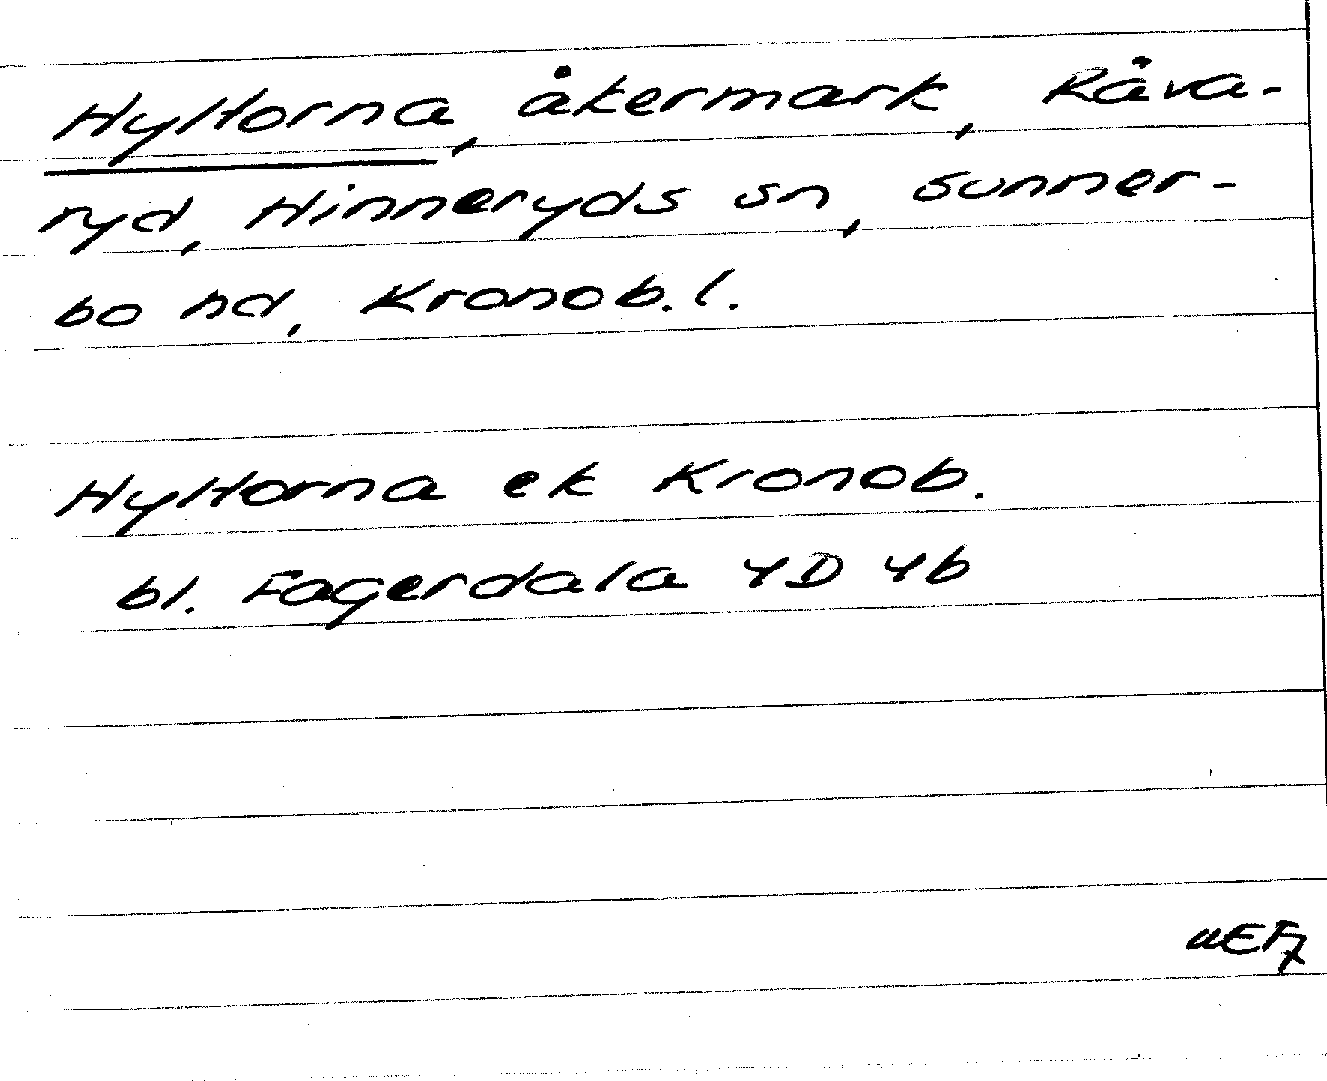 Hyltorna, åkermark, Råva-
ryd, Hinneryds sn, Sunner-
bo hd, Kronob. l.
Hyltorna ek Kronob.
bl. Fagerdala 4D 4b